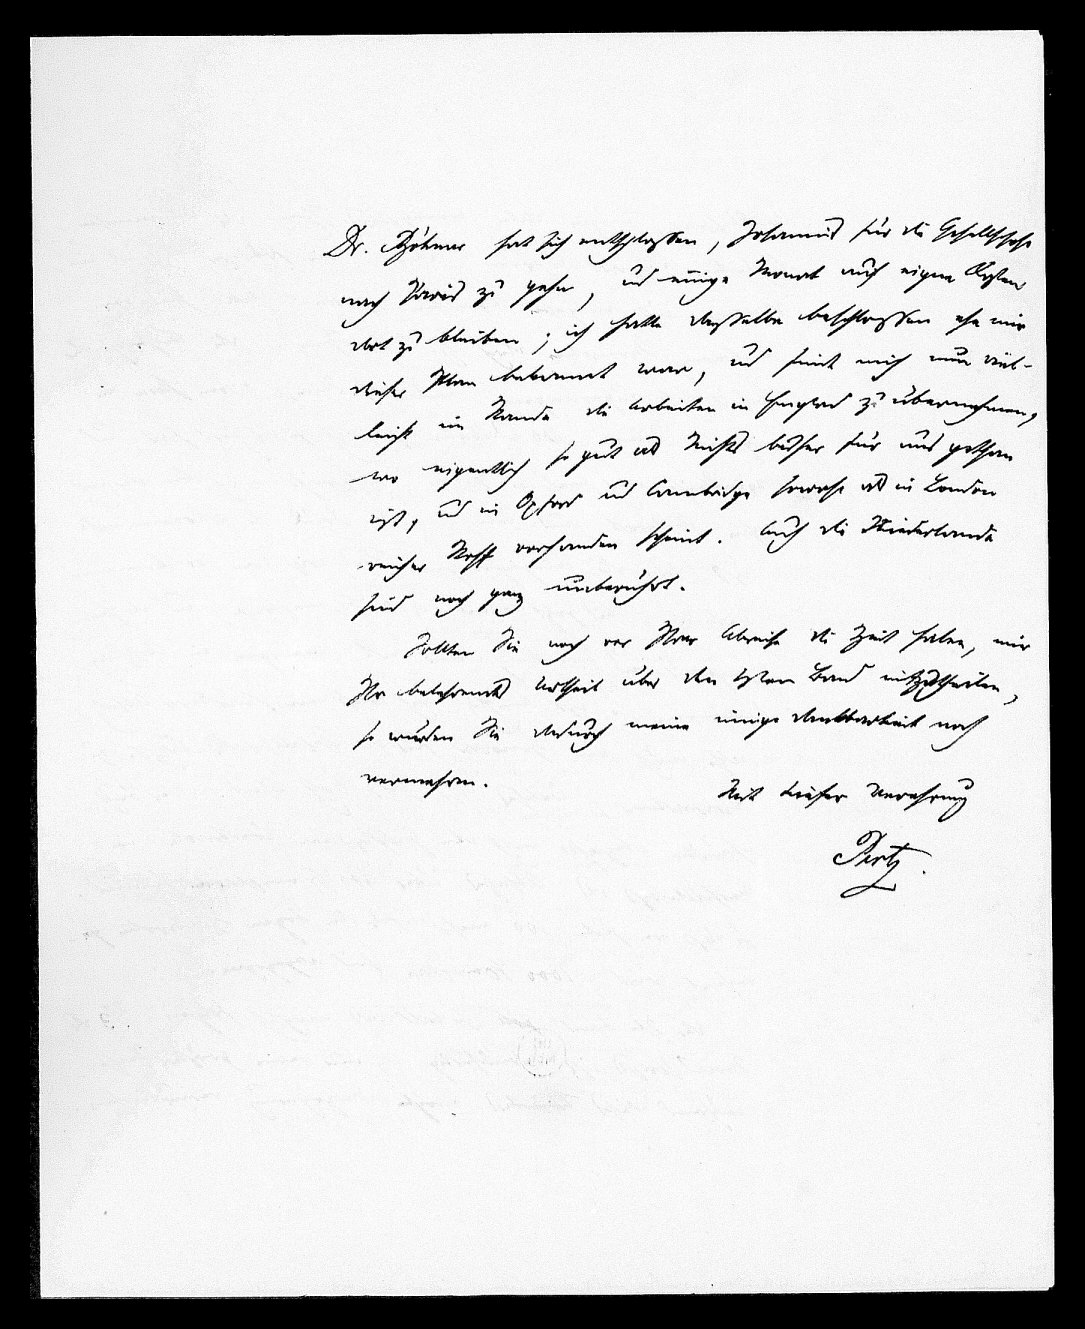 Dr. Böhmer hat sich entschlossen, Johannis für die Gesellschaft
nach Paris zu gehn, und einige Monat auf eigne Kosten
dort zu bleiben; ich hatte dasselbe beschlossen ehe mir
dieser Plan bekannt war, und sinne mich nun viel-
leicht im Stande die Arbeiten in England zu übernehmen,
wo eigentlich so gut als Nichts bisher für uns gethan
ist, und in Oxford und Cambridge sowohl als in London
reicher Stoff vorhanden scheint. Auch die Niederlande
sind noch ganz unberührt.
Sollten Sie noch vor Ihrer Abreise die Zeit haben, mir
Ihr belehrendes Urtheil über den 1sten Band mitzutheilen,
so würden Sie dadurch meine innige Dankbarkeit noch
vermehren.
Mit tiefer Verehrung
Pertz.